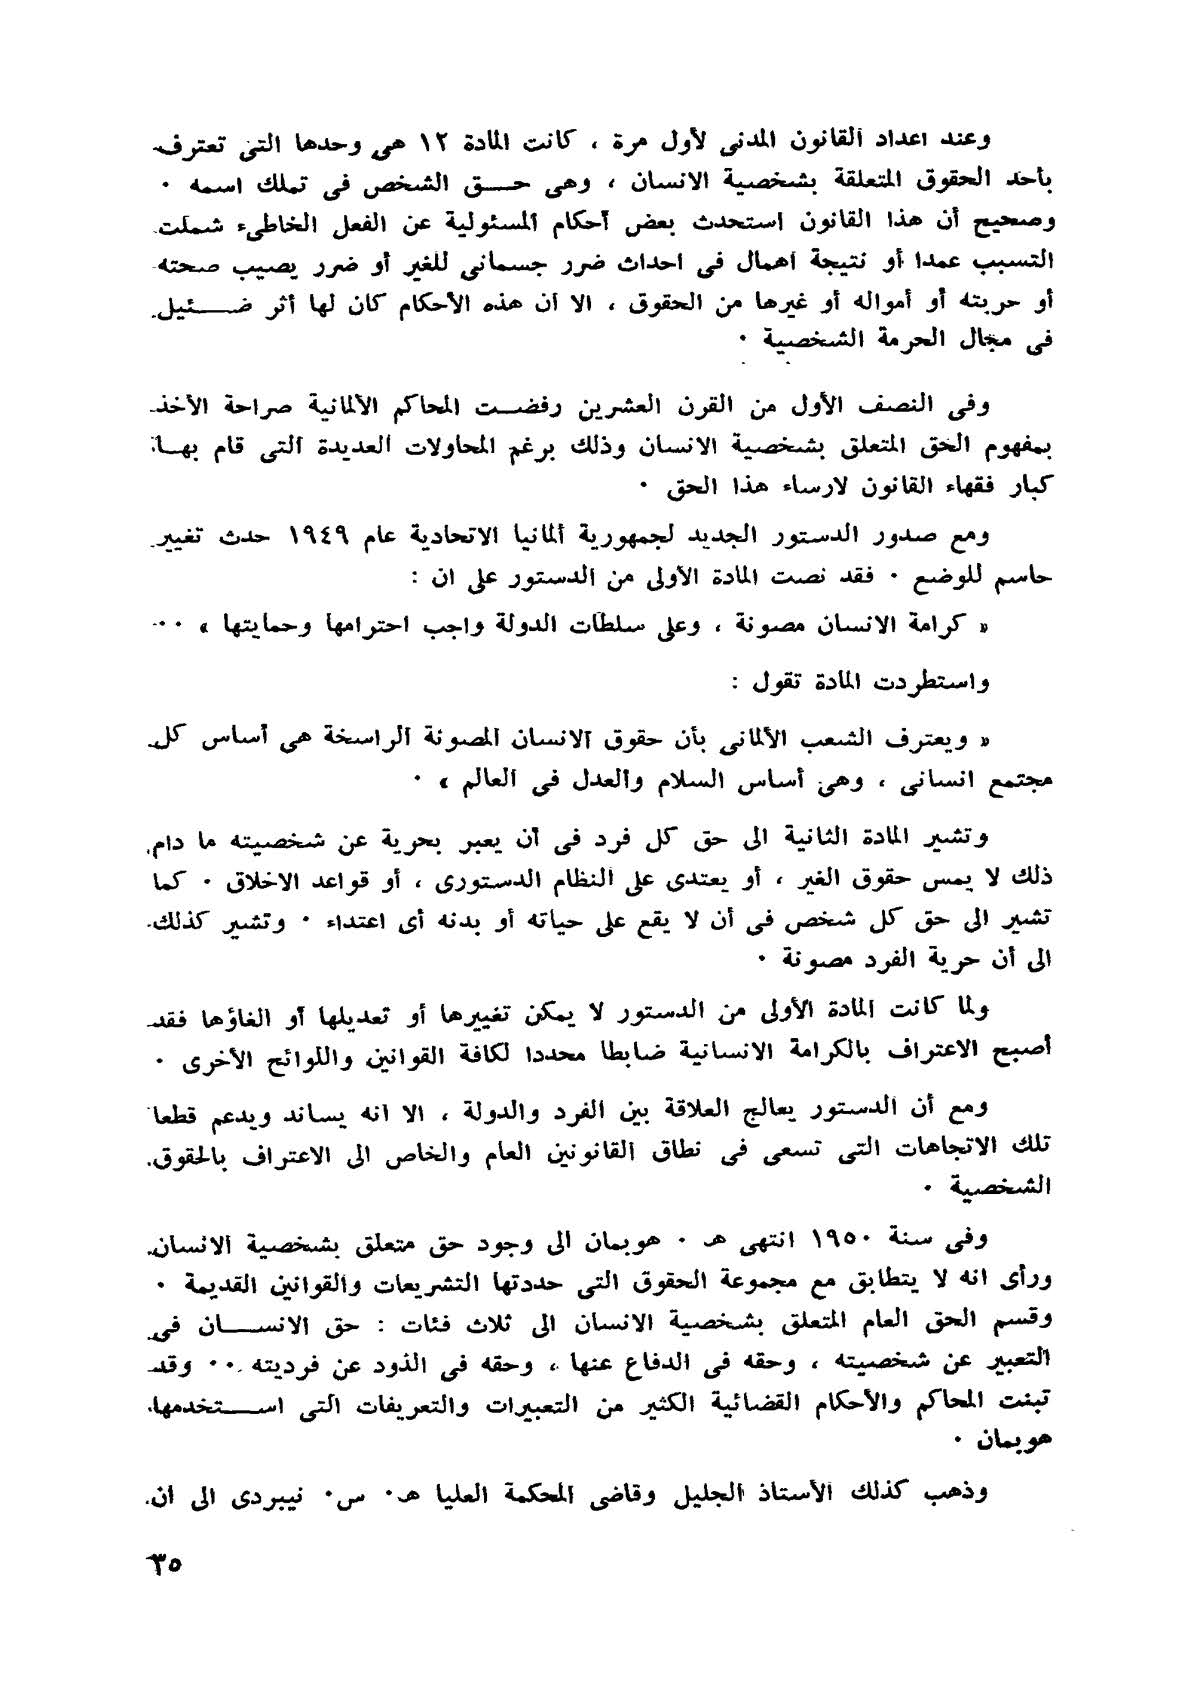 وعند اعداد القانون المدنى لأول مرة ، كانت المادة ١٢ هى وحدها التى تعترف
بأحد الحقوق المتعلقة بشخصية الانسان ، وهى حـــق الشخص فى تملك اسمه ٠
وصحيح أن هذا القانون استحدث بعض أحكام المسئولية عن الفعل الخاطىء شملت
التسبب عمدا أو نتيجة اهمال فى احداث ضرر جسمانى للغير أو ضرر يصيب صحته
أو حريته أو أمواله أو غيرها من الحقوق ، الا أن هذه الأحكام كان لها أثر ضـــــئيل
فى مجال الحرمة الشخصية ٠
وفى النصف الأول من القرن العشرين رفضت المحاكم الألمانية صراحة الأخذ
بمفهوم الحق المتعلق بشخصية الانسان وذلك برغم المحاولات العديدة التى قام بهـا
كبار فقهاء القانون لارساء هذا الحق ٠
ومع صدور الدستور الجديد لجمهورية ألمانيا الاتحادية عام ١٩٤٩ حدث تغيير
حاسم للوضع ٠ فقد نصت المادة الأولى من الدستور على ان :
« كرامة الانسان مصونة ، وعلى سلطات الدولة واجب احترامها وحمايتها » ٠٠
واستطردت المادة تقول :
« ويعترف الشعب الألمانى بأن حقوق الانسان المصونة الراسخة هى أساس كل
مجتمع انسانى ، وهى أساس السلام والعدل فى العالم » ٠
وتشير المادة الثانية الى حق كل فرد فى أن يعبر بحرية عن شخصيته ما دام
ذلك لا يمس حقوق الغير ، أو يعتدى على النظام الدستورى ، أو قواعد الاخلاق ٠ كما
تشير الى حق كل شخص فى أن لا يقع على حياته أو بدنه أى اعتداء ٠ وتشير كذلك
الى أن حرية الفرد مصونة ٠
ولما كانت المادة الأولى من الدستور لا يمكن تغييرها أو تعديلها أو الغاؤها فقد
أصبح الاعتراف بالكرامة الانسانية ضابطا محددا لكافة القوانين واللوائح الأخرى ٠
ومع أن الدستور يعالج العلاقة بين الفرد والدولة ، الا انه يساند ويدعم قطعا
تلك الاتجاهات التى تسعى فى نطاق القانونين العام والخاص الى الاعتراف بالحقوق
الشخصية ٠
وفى سنة ١٩٥٠ انتهى هـ ٠ هوبمان الى وجود حق متعلق بشخصية الانسان
ورأى انه لا يتطابق مع مجموعة الحقوق التى حددتها التشريعات والقوانين القديمة ٠
وقسم الحق العام المتعلق بشخصية الانسان الى ثلاث فئات : حق الانســـان فى
التعبير عن شخصيته ، وحقه فى الدفاع عنها ، وحقه فى الذود عن فرديته ٠٠ وقد
تبنت المحاكم والأحكام القضائية الكثير من التعبيرات والتعريفات التى اســـتخدمها
هوبمان ٠
وذهب كذلك الأستاذ الجليل وقاضى المحكمة العليا هـ٠ س٠ نيبردى الى أن
٣٥